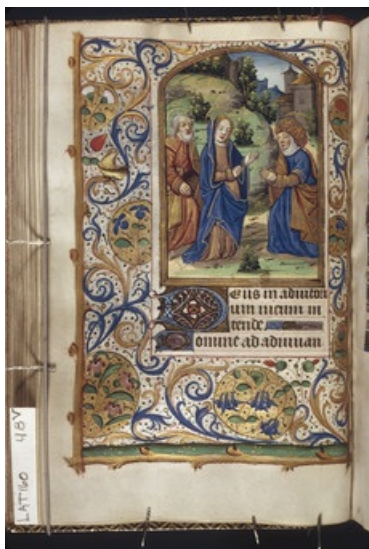 Eus in adiutori
um meum in
tende
omine ad adiuuan
LAT160 48V